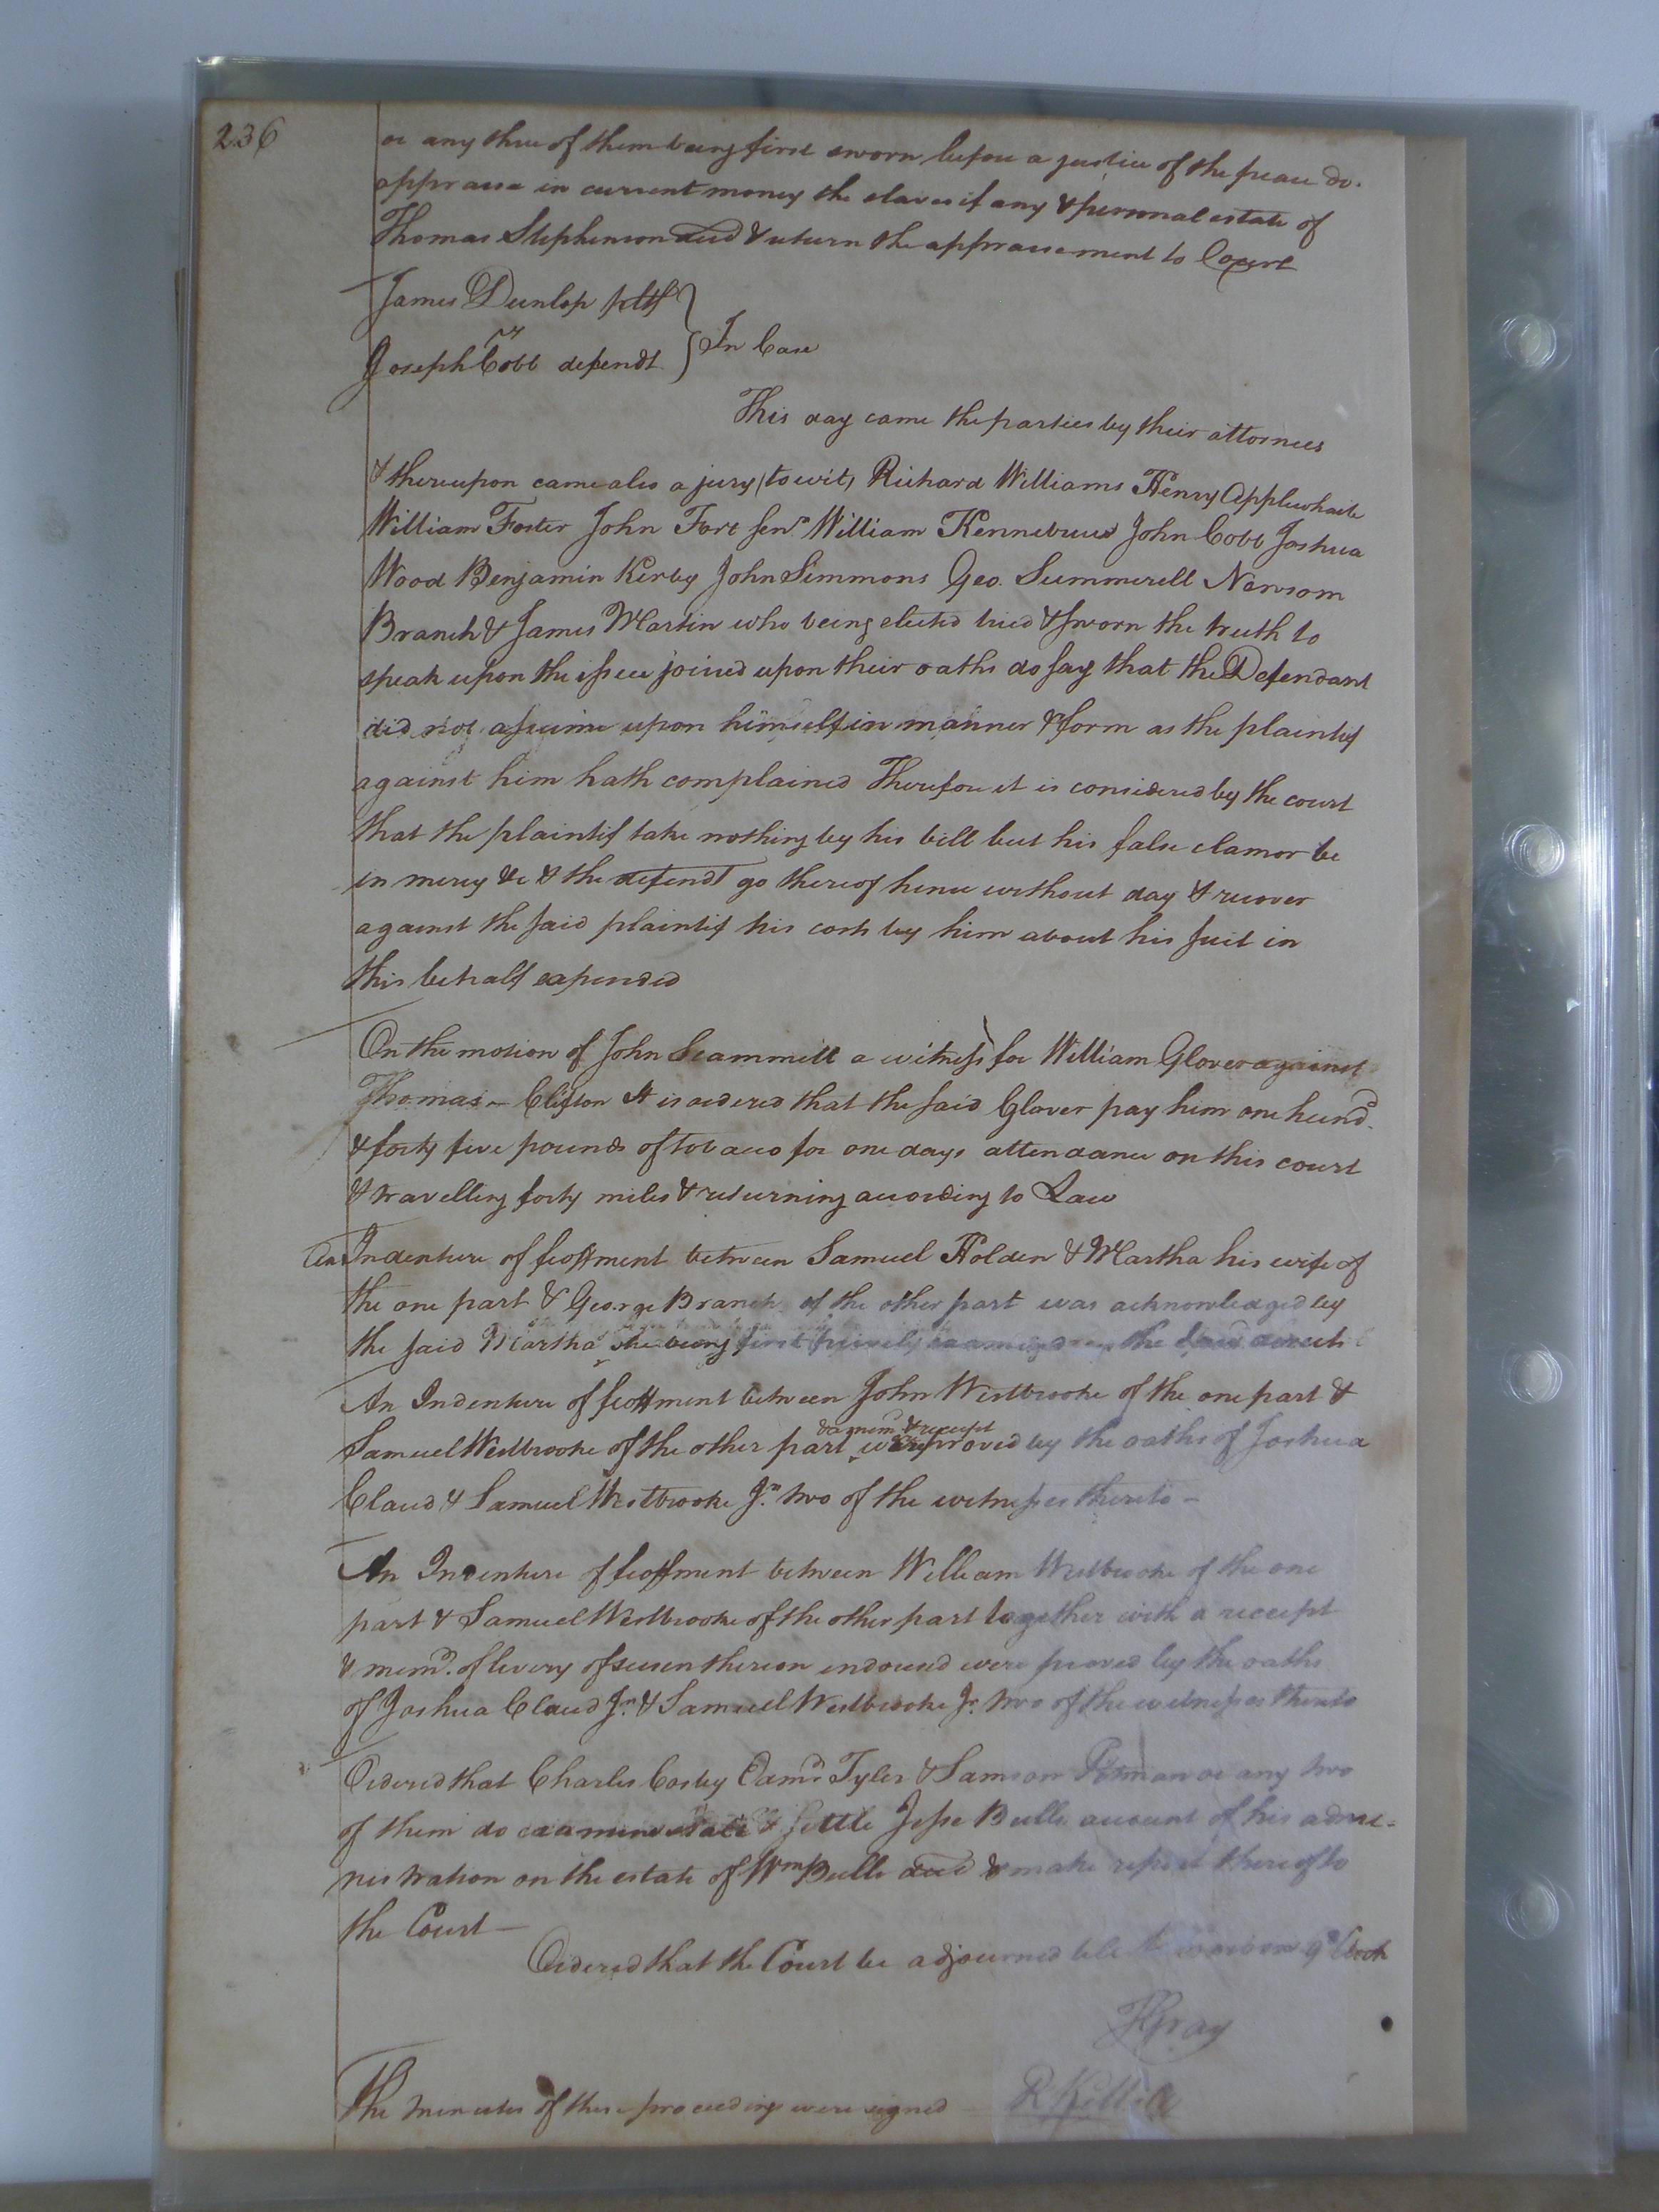 236
or any three of them being first sworn before a justice of the peace do.
appraise in current money the slaves if any & personal estate of
Thomas Stephenson decd & return the appraisement to Court
James Dunlop pltf
Joseph Cobb defendt } In Case
This day came the parties by their attornies
& thereupon came also a jury (to wit) Richard Williams Henry Applewhaite
William Foster John Fort Senr. William Kennebrew John Cobb Joshua
Wood Benjamin Kirby John Simmons Geo. Summerell Newsom
Branch & James Martin who being elected tried & sworn the truth to
speak upon the issue joined upon their oaths do say that the Defendant
did not assume upon himself in manner & form as the plaintif
against him hath complained Therefore it is considered by the court
that the plaintif take nothing by his bill but his false clamor be
in mercy &c & the defendt go thereof hence without day & recover
against the said plaintif his costs by him about his suit in
this behalf expended
On the motion of John Scammell a witness for William Glover against
Thomas Clifton It is ordered that the said Glover pay him one hund.
& forty five pounds of tobacco for one days attendance on this court
& travelling forty miles & returning according to Law
An Indenture of feoffment between Samuel Holden & Martha his wife of
the one part & George Branch of the other part was acknowledged by
the said Martha she being first privily examined as the Law directs
An Indenture of feoffment between John Westbrooke of the one part &
& a memd. & receipt
Samuel Westbrooke of the other part were proved by the oaths of Joshua
Claud & Samuel Westbrooke Jr. two of the witnesses thereto
An Indenture of feoffment between William Westbrooke of the one
part & Samuel Westbrooke of the other part together with a receipt
& memd. of livery of seisen thereon endorsed were proved by the oaths
of Joshua Claud Jr. & Samuel Westbrooke Jr. two of the witnesses thereto
Ordered that Charles Cosby Edmd. Tyler & Samson Pitman or any two
of them do examine state & settle Jesse Bulls account of his admi=
nistration on the estate of Wm Bulls decd & make report thereof to
the Court
Ordered that the Court be adjourned till tomorrow 9 oClock
Gray
The minutes of these proceedings were signed R Kello